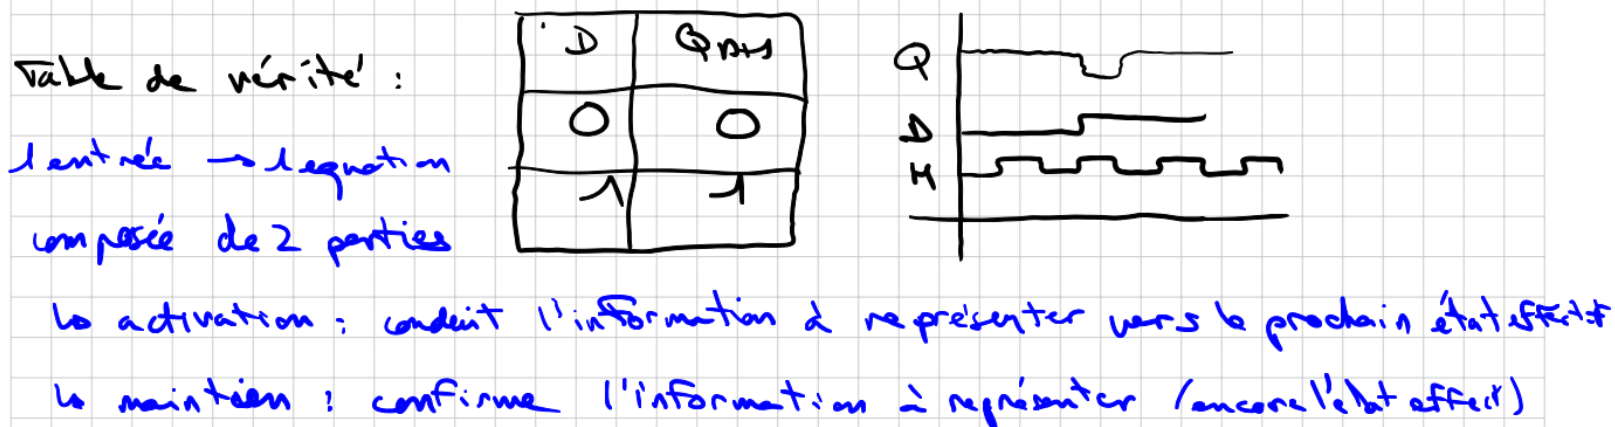 D Qn+1
Table de vérité :
0 0
1 1
Q
D
H
1 entrée → 1 equation
composée de 2 parties
↳ activation : conduit l'information à représenter vers le prochain état effectif
↳ maintien : confirme l'information à représenter (encore l'état effectif)